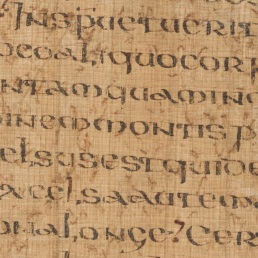 Inspuetuerit
deoaliquocorp
ntamquaminc
dinemmontisp
elsusestquide
excelsaautem
onalonge? Cer